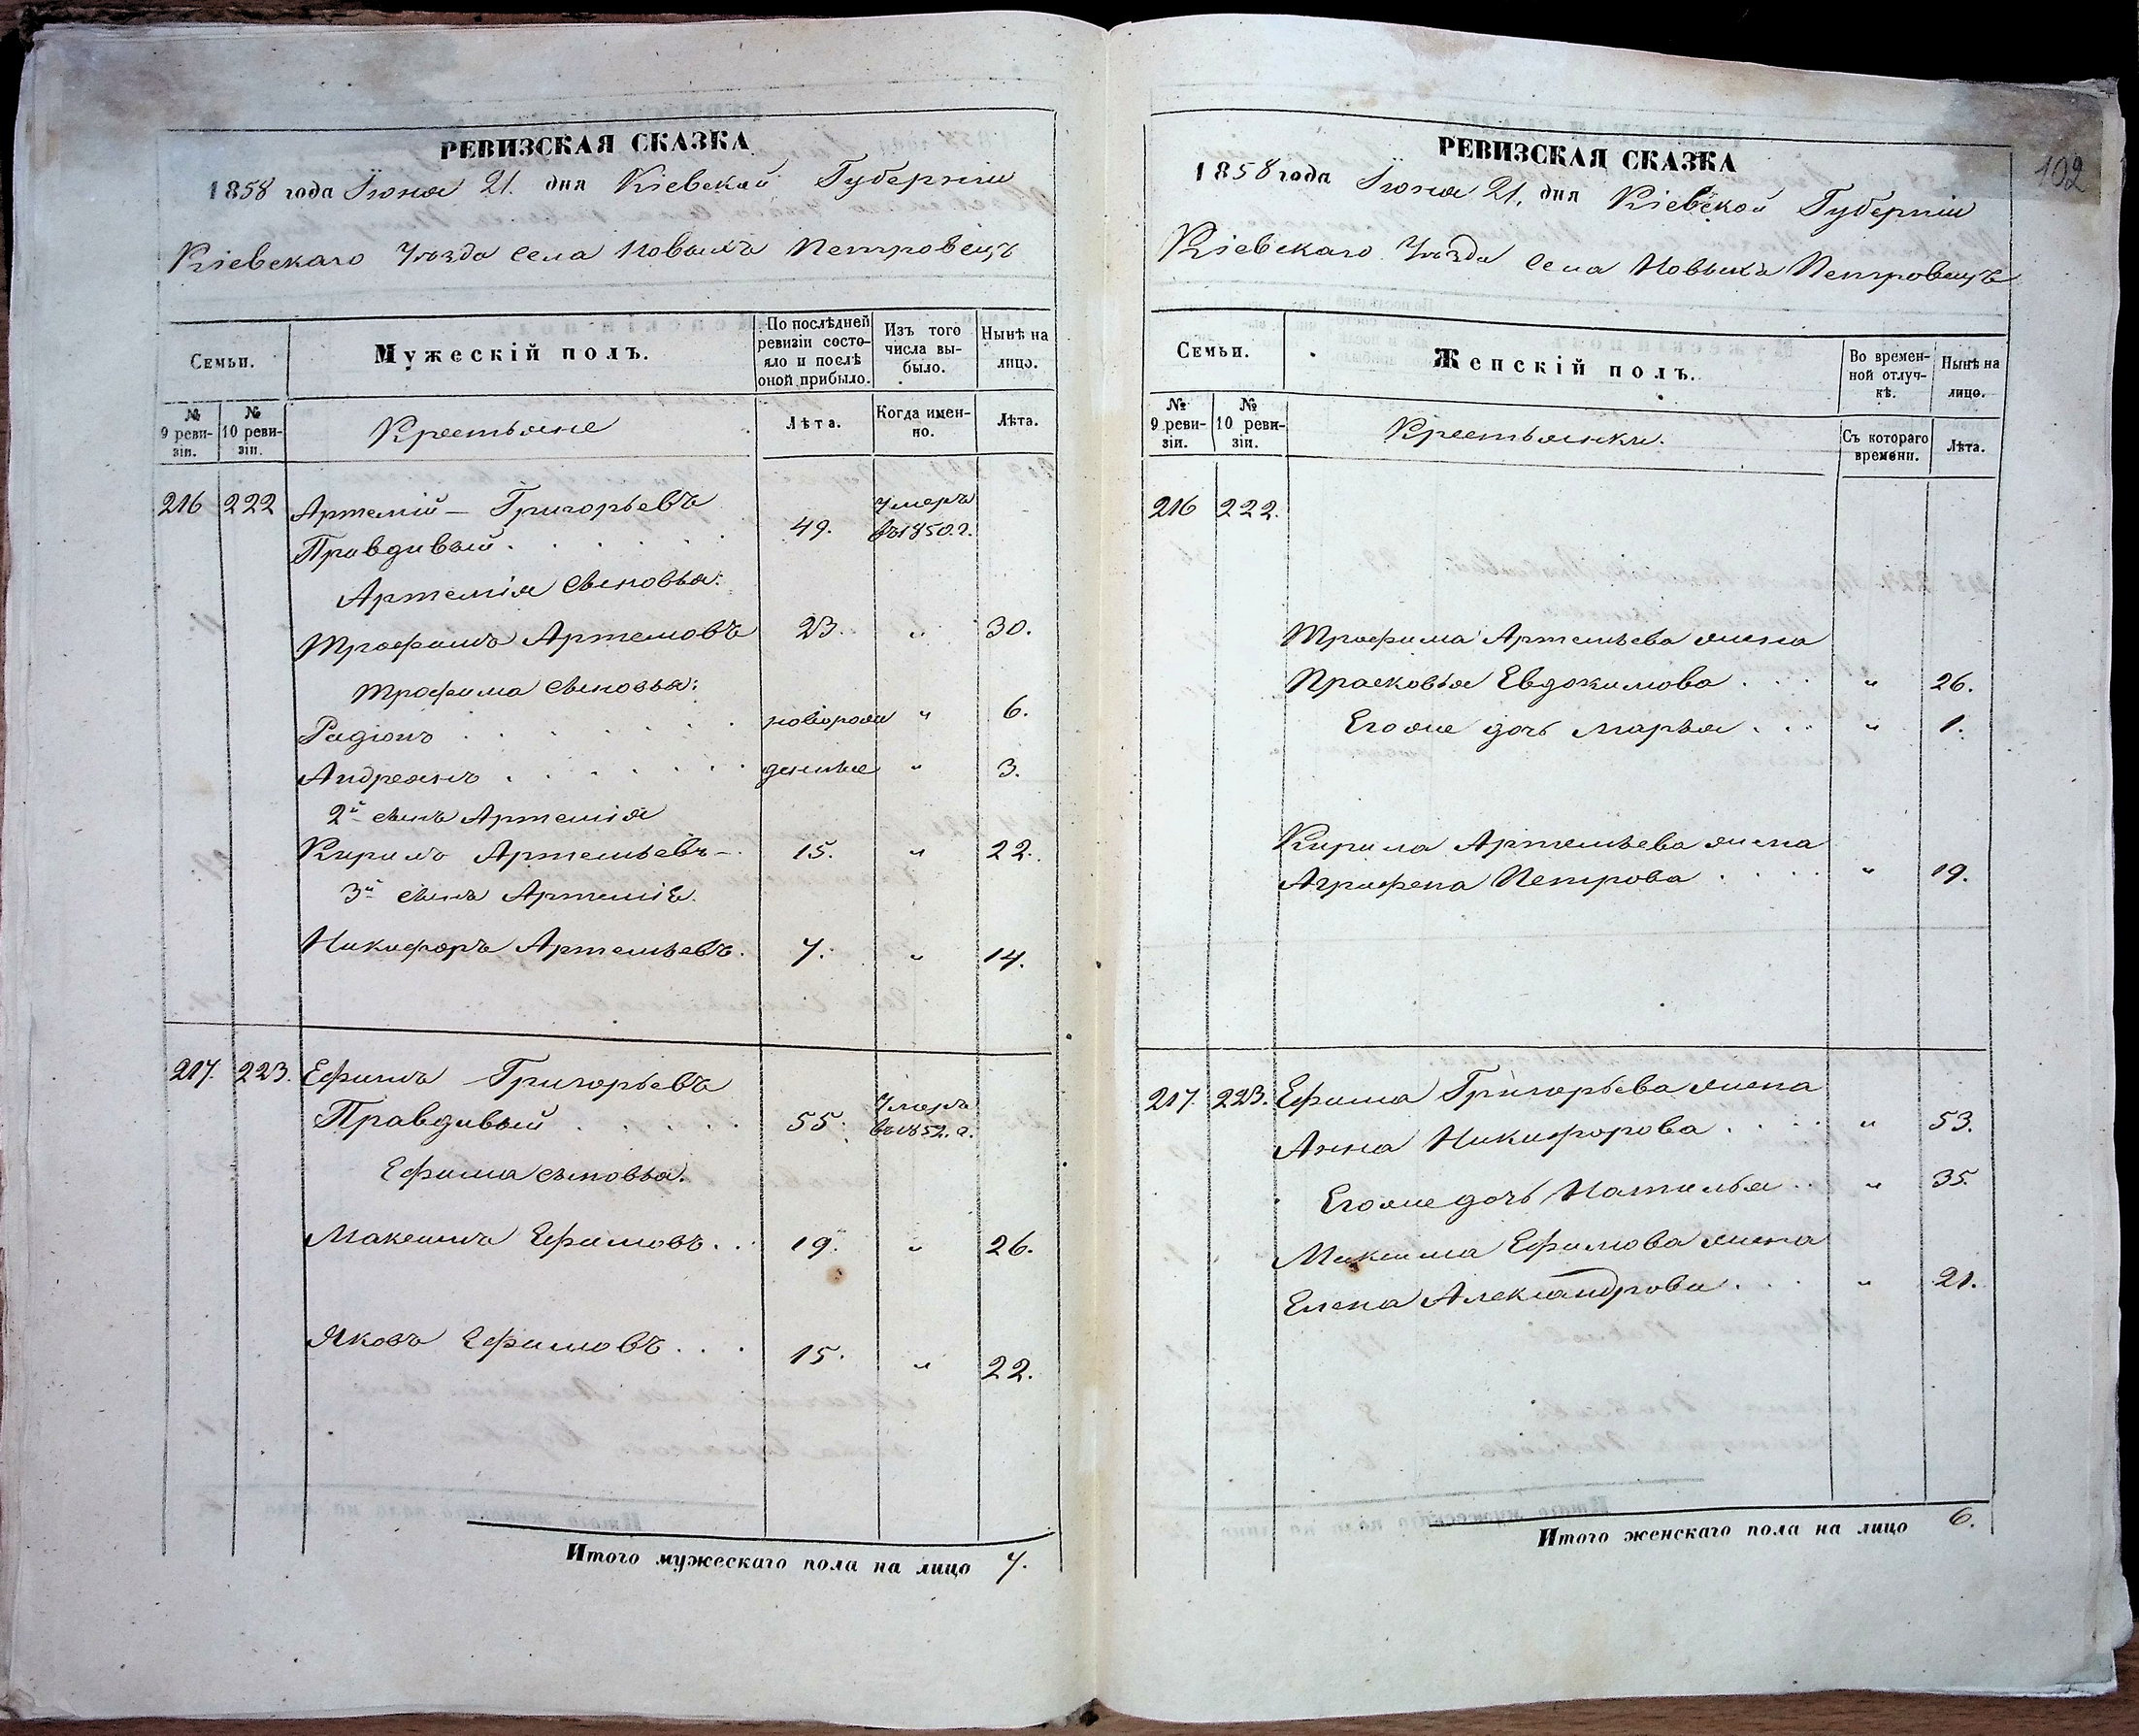 РЕВИЗСКАЯ СКАЗКА
1858 года Іюня 21. дня Кіевской Губерніи
Кіевскаго Уѣзда Села Новыхъ Петровецъ
Семьи.
Мужескій полъ.
По послѣдней ревизіи состояло и послѣ оной прибыло.
Изъ того числа выбыло.
Нынѣ на лицо.
№ 9 ревизіи.
№ 10 ревизіи.
Крестьяне
Лѣта.
Когда именно.
Лѣта.
216 222 Артемій – Григорьевъ Умеръ
Правдивый . . . . . . 49. въ 1850. г.
Артемія сыновья:
Трофимъ Артемовъ 23. " 30.
Трофима сыновья:
Радіонъ . . . . . . новорож " 6.
Андреянъ . . . . . . денные " 3.
2й сынъ Артемія
Кирилъ Артемьевъ – 15. " 22.
3й сынъ Артемія.
Никифоръ Артемьевъ. 7. " 14.
217. 223. Ефимъ Григорьевъ Умеръ
Правдивый . . . . . 55. въ 1852. г.
Ефима сыновья.
Максимъ Ефимовъ. . . 19. " 26.
Яковъ Ефимовъ . . . 15. " 22.
Итого мужескаго пола на лицо 7.
102
РЕВИЗСКАЯ СКАЗКА
1858 года Іюня 21. дня Кіевской Губерніи
Кіевскаго Уѣзда Села Новыхъ Петровецъ
Семьи.
Женскій полъ.
Во временной отлучкѣ.
Нынѣ на лицо.
№ 9 ревизіи.
№ 10 ревизіи.
Крестьянки.
Съ котораго времени.
Лѣта.
216 222.
Трофима Артемьева жена
Прасковья Евдокимова . . . " 26.
Его же дочь Марья . . . " 1.
Кирила Артемьева жена
Агрифена Петрова . . . . " 19.
217. 223. Ефима Григорьева жена
Анна Никифорова . . . . " 53.
Его же дочь Наталья . . " 35.
Максима Ефимова жена
Елена Александрова . . . " 21.
Итого женскаго пола на лицо 6.